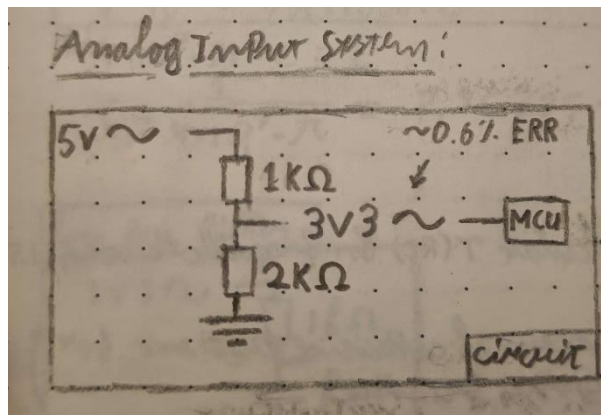 Analog InPut System:
5V ~ ~0.6% ERR
1KΩ
3V3 ~ MCU
2KΩ
circuit